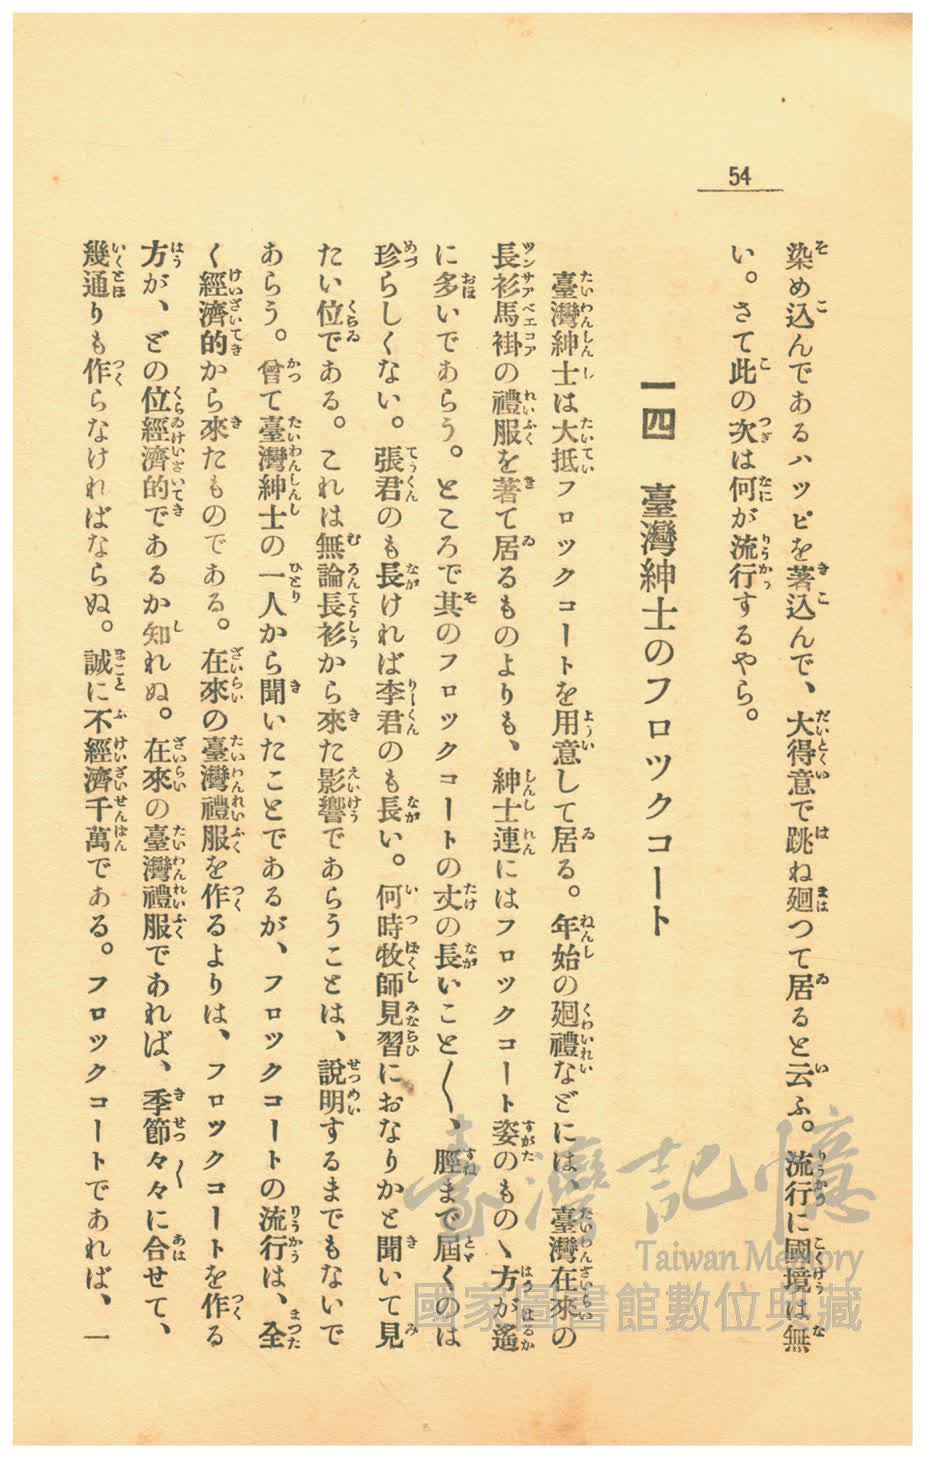 54
染め込んであるハッピを著込んで、大得意で跳ね廻つて居ると云ふ。流行に國境は無
い。さて此の次は何が流行するやら。
一四　臺灣紳士のフロックコート
臺灣紳士は大抵フロックコートを用意して居る。年始の廻禮などには、臺灣在來の
長衫馬褂の禮服を著て居るものよりも、紳士連にはフロックコート姿のものゝ方が遙
に多いであらう。ところで其のフロックコートの丈の長いこと〱、脛まで屆くのは
珍らしくない。張君のも長ければ李君のも長い。何時牧師見習におなりかと聞いて見
たい位である。これは無論長衫から來た影響であらうことは、說明するまでもないで
あらう。曾て臺灣紳士の一人から聞いたことであるが、フロックコートの流行は、全
く經濟的から來たものである。在來の臺灣禮服を作るよりは、フロックコートを作る
方が、どの位經濟的であるか知れぬ。在來の臺灣禮服であれば、季節々々に合せて、
幾通りも作らなければならぬ。誠に不經濟千萬である。フロックコートであれば、一
臺灣記憶
Taiwan Memory
國家圖書館數位典藏